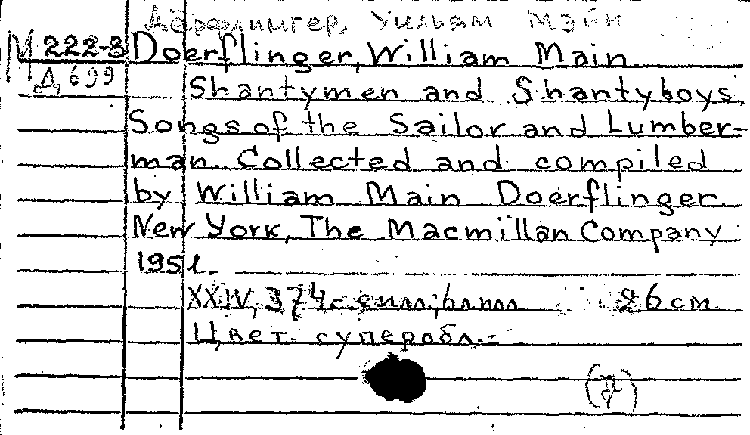 Дёрфлингер, Уильям Мэйн
М 222-3 Doerflinger, William Main.
Д, 699
Shantymen and Shantyboys.
Songs of the Sailor and Lumber-
man. Collected and compiled
by William Main Doerflinger.
New York, The Macmillan Company
1951.
XXIV, 374 с. 26 см
Цвет. суперобл.-